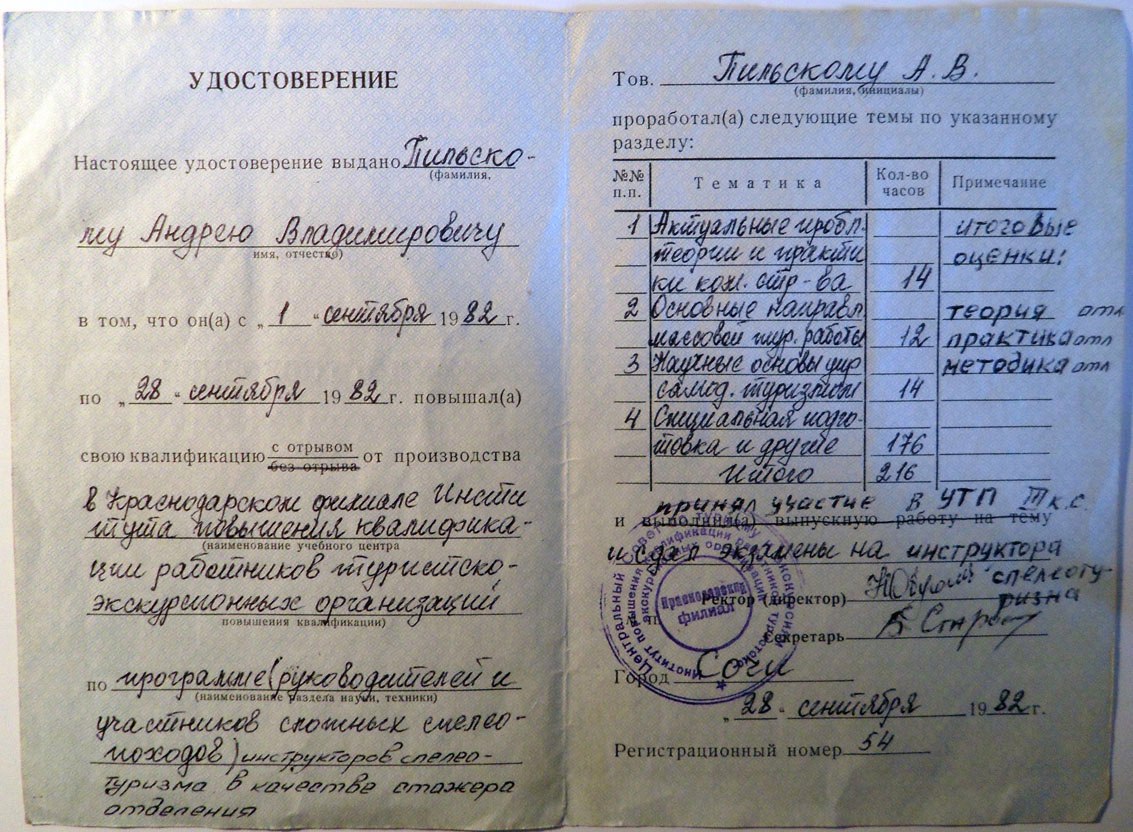 УДОСТОВЕРЕНИЕ
Настоящее удостоверение выдано Пильско-
(фамилия,
му Андрею Владимировичу
имя, отчество)
в том, что он(а) с „ 1 “ сентября 1982 г.
по „ 28 “ сентября 1982 г. повышал(а)
с отрывом
свою квалификацию без отрыва от производства
в Краснодарском филиале Инсти
тута повышения квалифика
(наименование учебного центра
ции работников туристско-
экскурсионных организаций
повышения квалификации)
по программе (руководителей и
(наименование раздела науки, техники)
участников сложных спелео-
походов) инструкторов спелео-
туризма в качестве стажера
отделения
Тов. Пильскому А. В.
(фамилия, инициалы)
проработал(а) следующие темы по указанному
разделу:
№№ п.п. Тематика Кол-во часов Примечание
1 Актуальные пробл. итоговые
теории и практи оценки:
ки ком. стр-ва 14
2 Основные направл теория отл
массовой тур. работы 12 практика отл
3 Научные основы упр методика отл
самод. туризмом 14
4 Специальная подго-
товка и другие 176
Итого 216
принял участие в УТП III к.с.
и выполнил(а) выпускную работу на тему
и сдал экзамены на инструктора
спелеоту-
ризна
Ректор (директор)
Секретарь
Город Сочи
„ 28 “ сентября 1982 г.
Регистрационный номер 54
Краснодарский
филиал